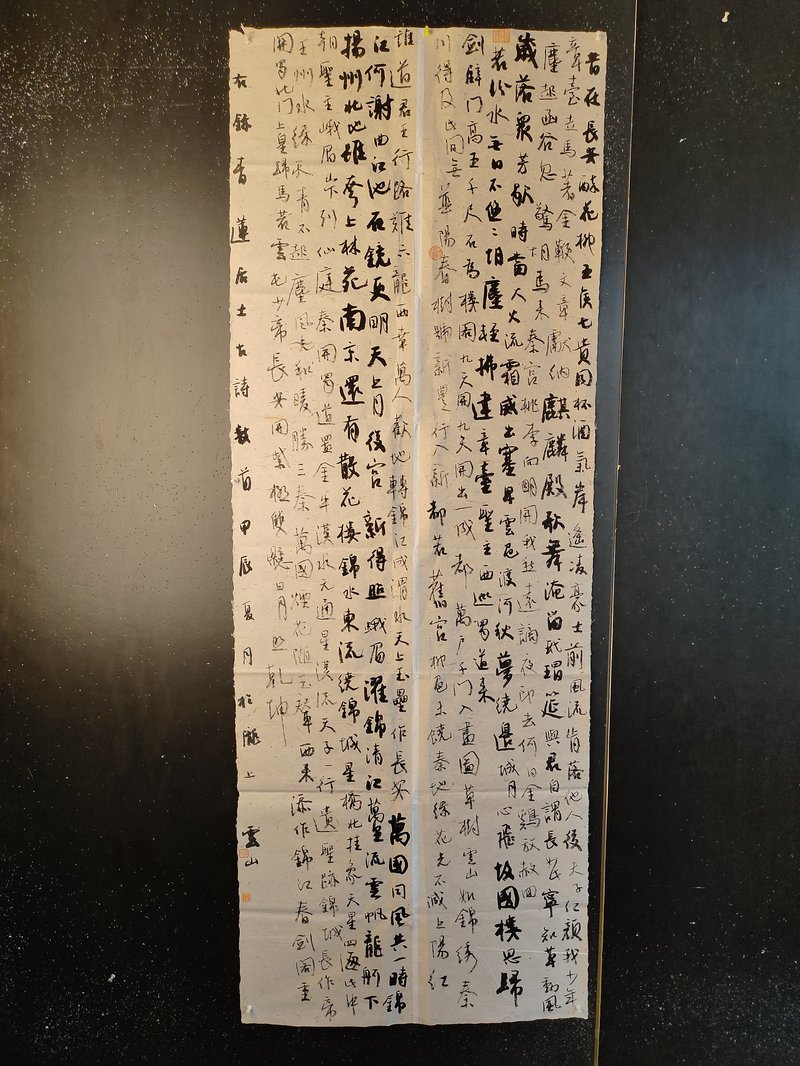 昔在長安醉花柳五侯七貴同杯酒氣岸遙凌豪士前風流肯落他人後夫子紅顏我少年
章臺走馬著金鞭文章獻納麒麟殿歌舞淹留玳瑁筵與君自謂長如此寧知草動風
塵起函谷忽驚胡馬來秦宮桃李向明開我愁遠謫夜郎去何日金鷄放赦回
歲落衆芳歇時當大火流霜威出塞早雲色渡河秋夢繞邊城月心飛故國樓思歸
若汾水無日不悠〻胡塵輕拂建章臺聖主西巡蜀道來
劍壁門高五千尺石為樓閣九天開九天開出一成都萬戶千門入畫圖草樹雲山如錦繡秦
川得及此間無華陽春樹號新豐行入新都若舊宮柳色未饒秦地綠花光不減上陽紅
誰道君王行路難六龍西幸萬人歡地轉錦江成渭水天上玉壘作長安萬國同風共一時錦
江何謝曲江池石鏡更明天上月後宮新得照蛾眉濯錦清江萬里流雲帆龍舸下
揚州北地雖夸上林苑南京還有散花樓錦水東流繞錦城星橋北挂象天星四海此中
朝聖主峨眉山下列仙庭秦開蜀道置金牛漢水元通星漢流天子一行遺聖跡錦城長作帝
王州水綠天青不起塵風光和暖勝三秦萬國煙花隨玉輦西來添作錦江春劍閣重
開蜀北門上皇歸馬若雲屯少帝長安開紫極雙懸日月照乾坤
右錄青蓮居士古詩數首甲辰夏月於隴上 雲山